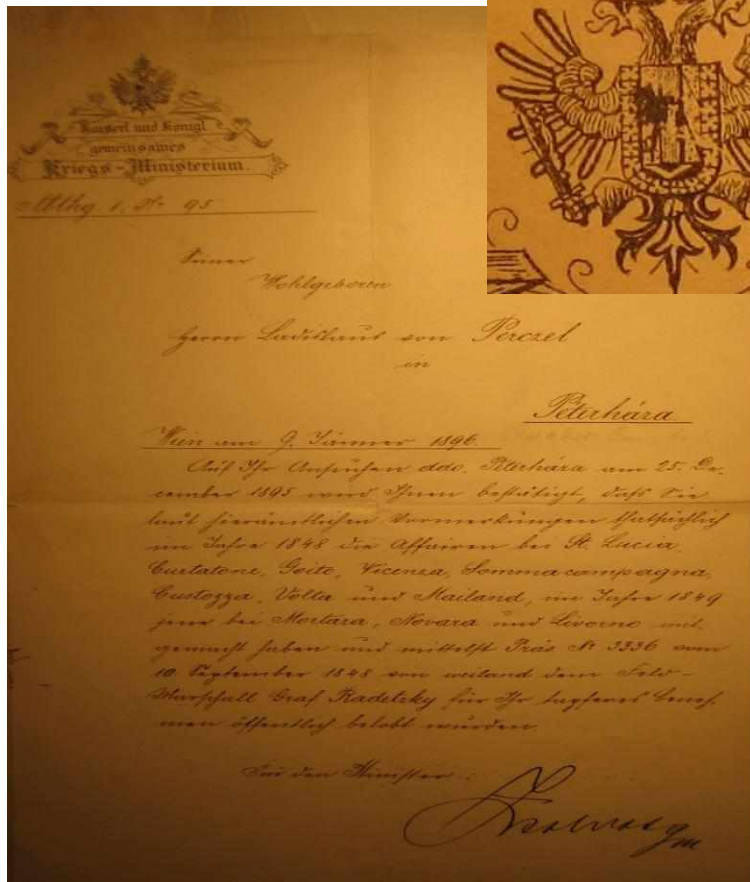 Kaiserl und Königl
gemeinsames
Kriegs-Ministerium.
1. Nr 95
Seiner
Wohlgeboren
Herrn Ladislaus von Perczel
in
Péterhára.
Wien am 9. Jänner 1896.
Auf Ihr Ansuchen ddo. Péterhára am 25. De-
cember 1895 wird Ihnen bestätigt, daß Sie
laut hierämtlichen Vormerkungen thatsächlich
im Jahre 1848 die Affairen bei St. Lucia,
Curtatone, Goito, Vicenza, Sommacampagna,
Custozza, Volta und Mailand, im Jahre 1849
jene bei Mortara, Novara und Livorno mit-
gemacht haben und mittelst Präs Nr 3336 vom
10. September 1848 von weiland dem Feld-
Marschall Graf Radetzky für Ihr tapferes Beneh-
men öffentlich belobt wurden.
Für den Minister: